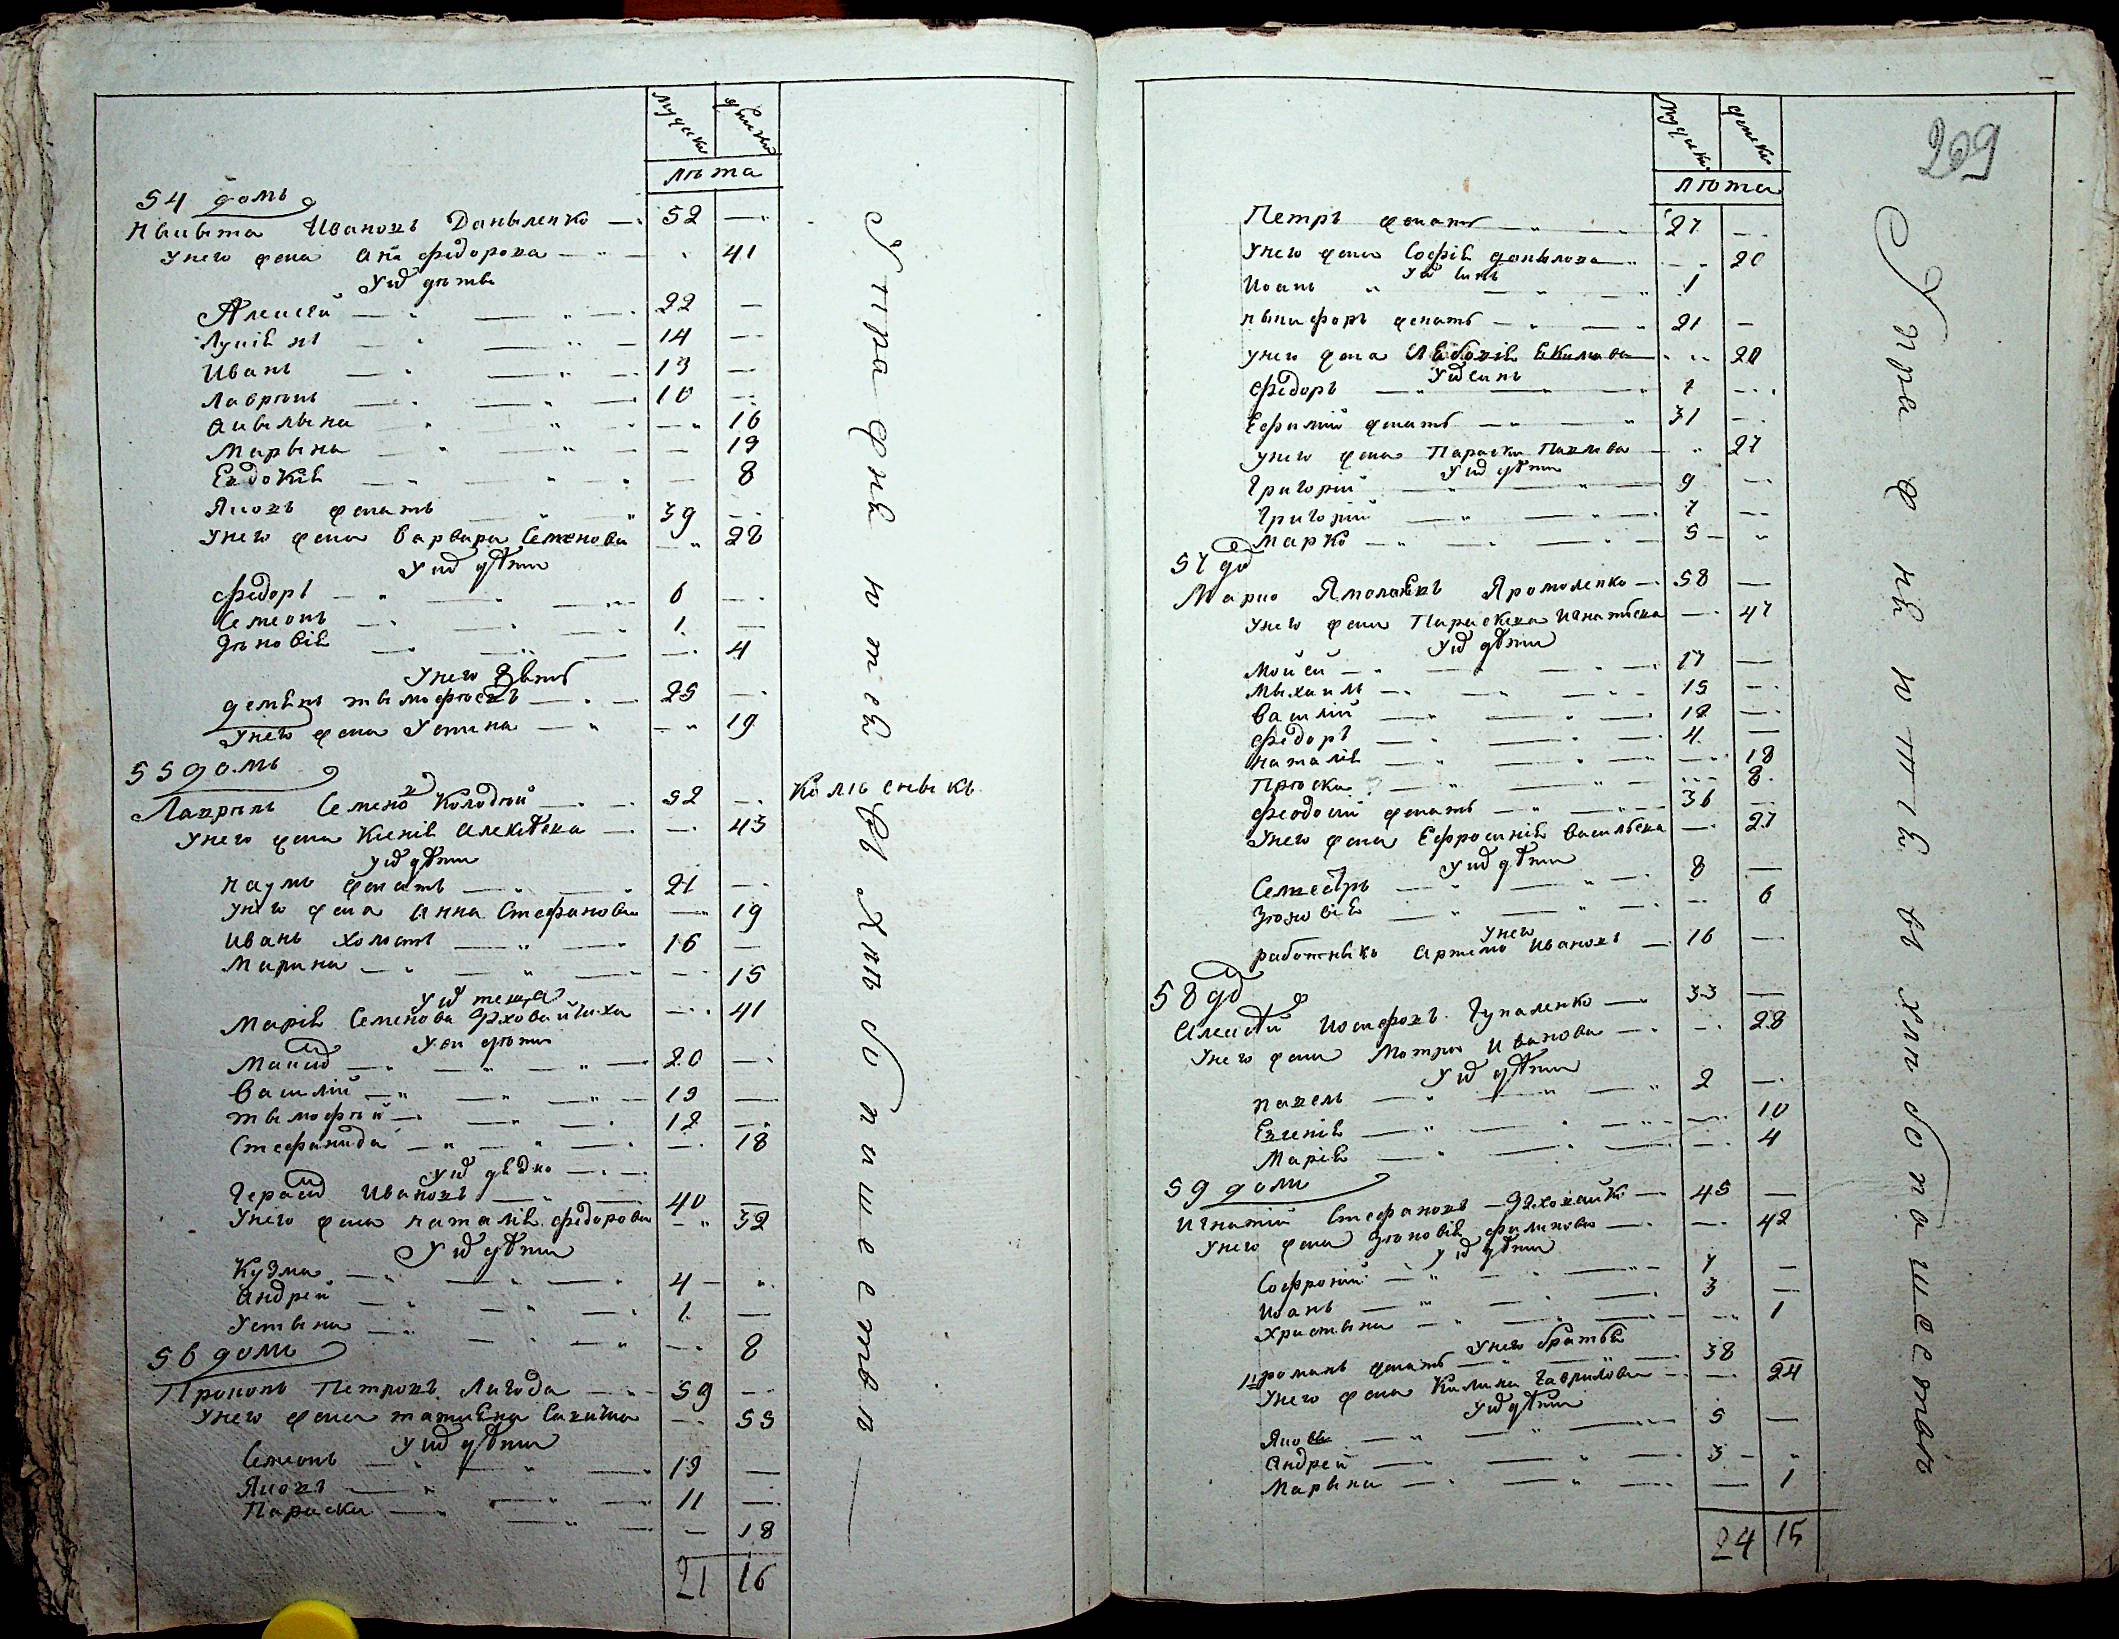 мужска
женска
лѣта
54 домъ
Ныкыта Ивановъ Даныленко 52
У него жена Анна Федорова 41
У ныхъ дѣты
Алексѣй 22
14
Иванъ 13
Лаврѣнъ 10
Акылына 16
Марына 19
Евдокія 8
Яковъ женатъ 39
У него жена Варвара Семенова 28
У ныхъ дѣти
Федоръ 6
Семеонъ 1
Зѣновія 4
У него зять
Демянъ Тымофѣевъ 25
У него жена Устина 19
55 домъ
Лаврѣнъ Семеновъ Колодѣй 52
У него жена Ксенія Алексѣева 43
У ныхъ дѣти
Наумъ женатъ 21
У него жена Анна Стефанова 19
Иванъ холостъ 16
Марина 15
У ныхъ теща
Марія Семенова 41
У ей дѣти
20
Василій 19
Тымофѣй 12
Стефанида 18
У ныхъ дядко
Герасимъ Ивановъ 40
У него жена Наталія Федорова 32
У ныхъ дѣти
Кузма 4
Андрей 1
Устына 8
56 домъ
Прокопъ Петровъ Лагода 59
У него жена Татіяна Савична 55
У ныхъ дѣти
Семеонъ 19
Яковъ 11
Параска 18
21 16
Упражняются въ хлѣбопашествѣ
колѣсныкъ
209
мужска
женска
лѣта
Петръ женатъ 27
У него жена Софія Данылова 20
У ныхъ сынъ
Иоанъ 1
Ныкифоръ женатъ 21
У него жена Якимова 20
У ныхъ синъ
Федоръ 1
Ефимій женатъ 31
У него жена Параска Павлова 27
У ныхъ дѣти
Григорій 9
Григорій 7
Марко 5
57 до
Марко Ярмоленко 58
У него жена Параскева Игнатѣева 47
У ныхъ дѣти
Мойсей 17
Мыхаилъ 15
Василій 12
Федоръ 4
Наталія 18
Прѣска 8
Феодосій женатъ 36
У него жена Ефросинія Васильѣва 27
У ныхъ дѣти
8
Зѣновія 6
У него
работныкъ Артемъ Ивановъ 16
58 до
Алексѣй Иосифовъ Гупаленко 33
У него жена Мотря Иванова 28
У ныхъ дѣти
Павелъ 2
Евгенія 10
Марія 4
59 домъ
Игнатій Стефановъ 45
У него жена Зѣновія Филипова 42
У ныхъ дѣти
Софроній 7
Иоанъ 3
Христына 1
У него братья
Романъ женатъ 38
У него жена Калина Гаврилова 24
У ныхъ дѣти
Яковъ 5
Андрей 3
Марына 1
24 15
Упражняются въ хлѣбопашествѣ